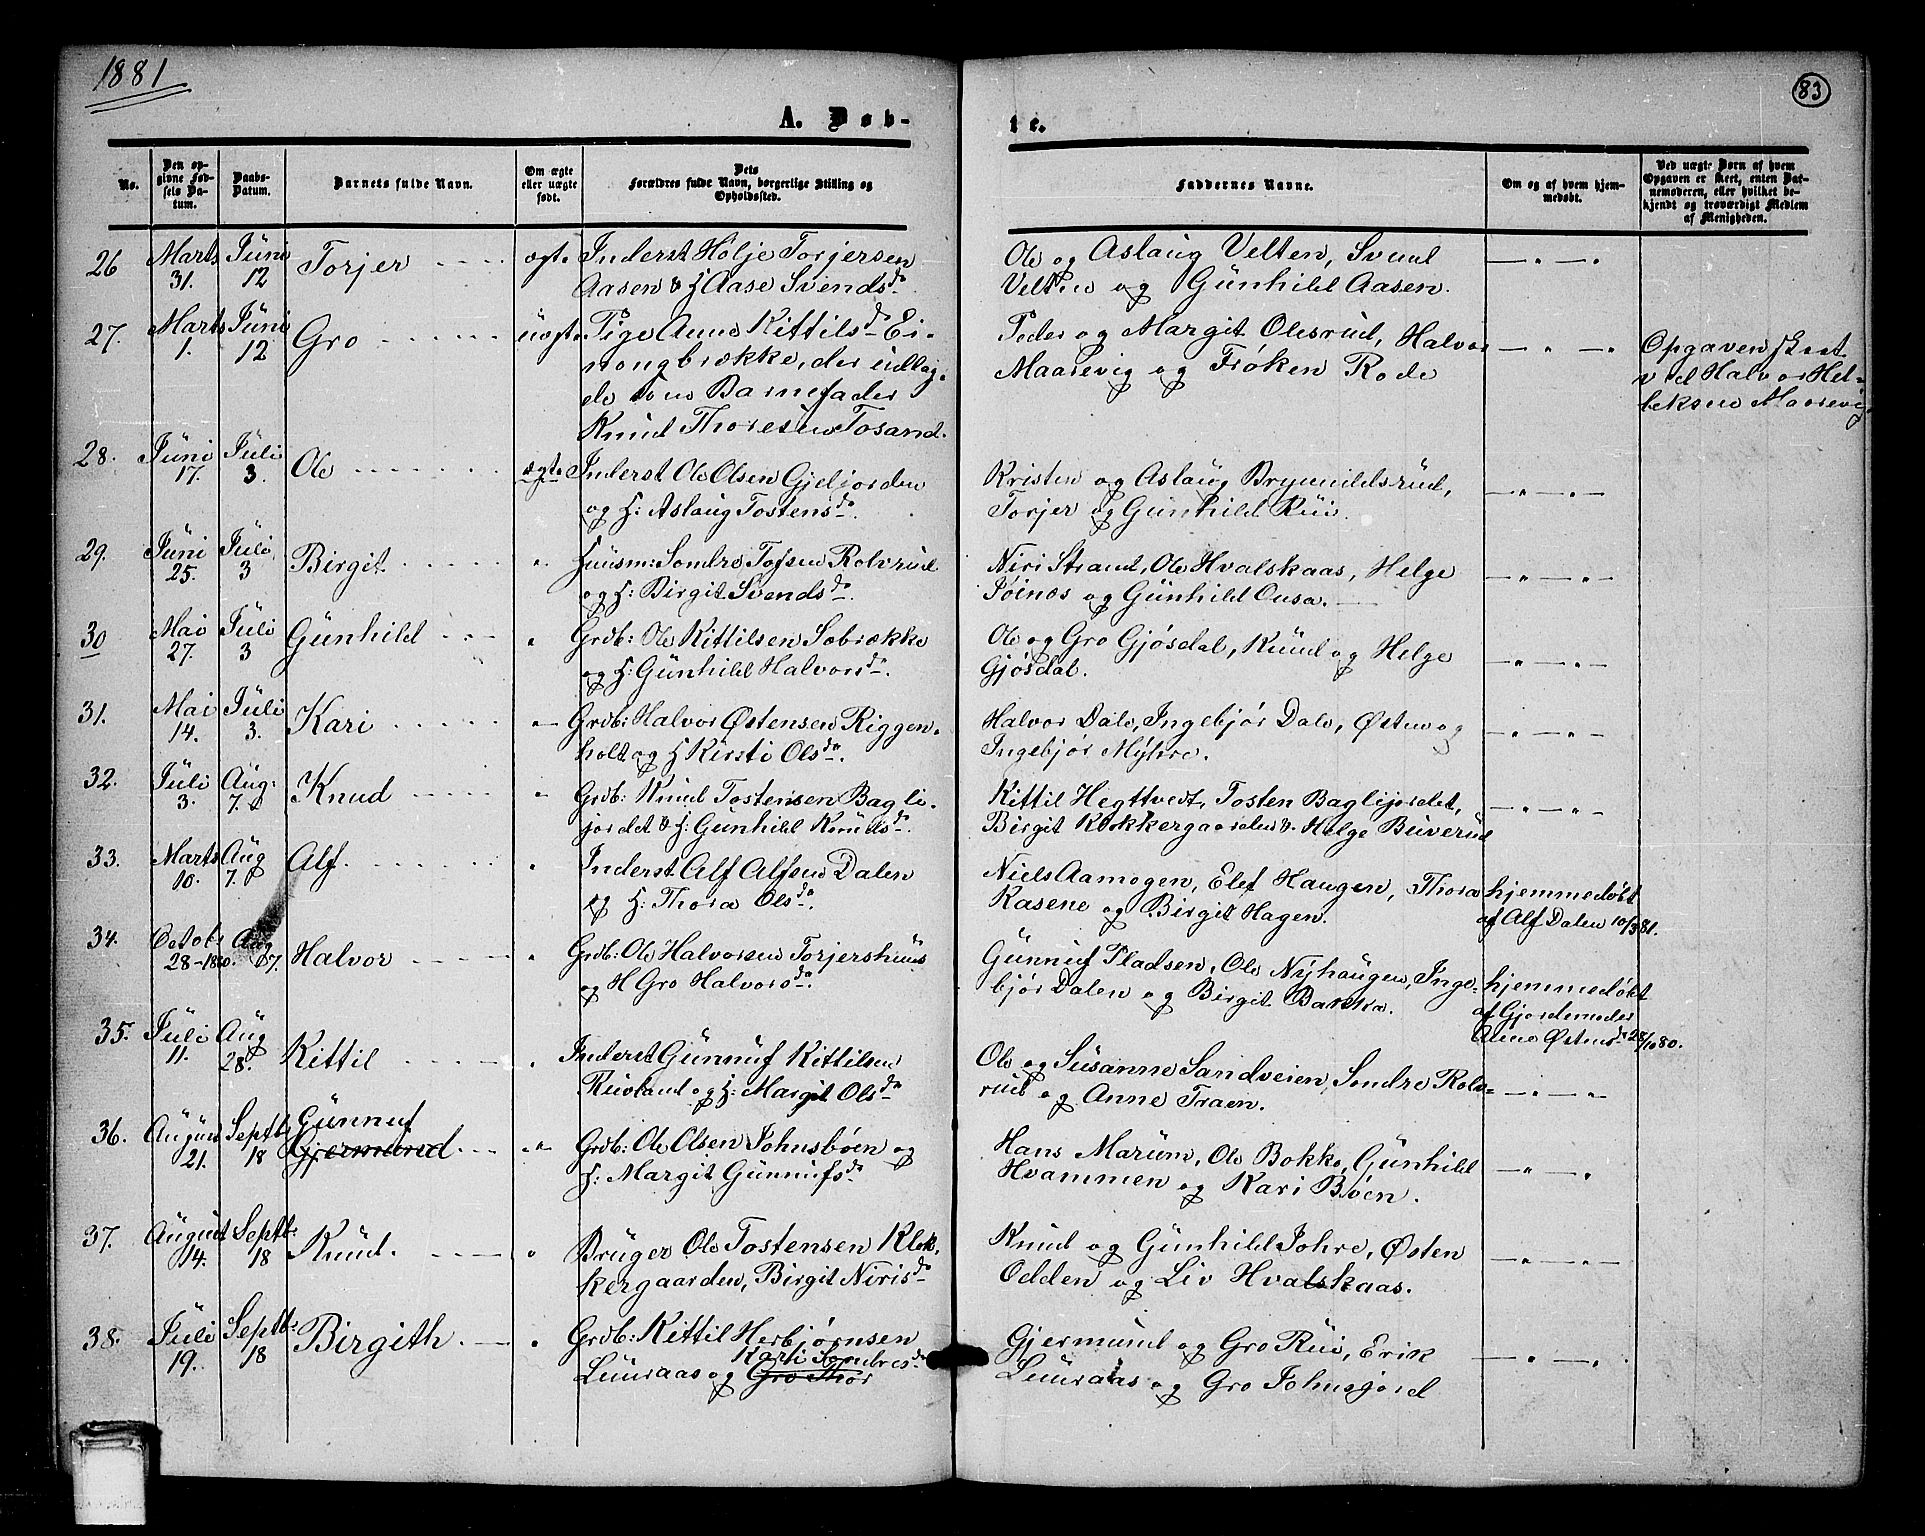 1881
83
A. Døb-
te.
No.
Den op-
givne Fød-
sels Da-
tum.
Daabs-
Datum.
Barnets fulde Navn.
Om ægte
eller uægte
født.
Dets
Forældres fulde Navn, borgerlige Stilling og
Opholdssted.
Faddernes Navne.
Om og af hvem hjem-
medøbt.
Ved uægte Børn af hvem
Opgaven er skeet, enten Bar-
nemoderen, eller hvilket be-
kjendt og troværdigt Medlem
af Menigheden.
26 Marts 31. Juni 12 Torjer ægt. Inderst Hølje Torjersen
Aasen & H Aase Svendsda.
Ole og Aslaug Velten, Svend
Velten og Gunhild Aasen.
27. Marts 1. Juni 12 Gro uægt. Pige Anne Kittilsda Ei-
nongbrække, der udlag-
de som Barnefader
Knud Thoresen Tosand.
Peder og Margit Olesrud, Halvor
Maarevig og Frøken Rode
Opgaven skeet
ved Halvor Hel-
leksen Maarevig
28. Juni 17. Juli 3. Ole ægte Inderst Ole Olsen Gjeljorden
og H: Aslaug Tostensda.
Kristen og Aslaug Brynnildsrud,
Torjer og Gunhild Rui.
29. Juni 25. Juli 3 Birgit Huusm: Sondre Tofsen Rolvrud
og H: Birgit Svendsda.
Niri Strand, Ole Hvalskaas, Helge
Jøinos og Gunhild Ousa.
30 Mai 27. Juli 3 Gunhild Grdb: Ole Kittilsen Søbrække
og H: Gunhild Halvorsda.
Ole og Gro Gjøsdal, Knud og Helge
Gjøsdal.
31. Mai 14. Juli 3. Kari Grdb: Halvor Østensen Riggen-
holt og H Kirsti Olsda.
Halvor Dale, Ingebjør Dale, Østen og
Ingebjør Myhre.
32. Juli 3. Aug. 7. Knud Grdb: Knud Tostensen Bagli-
jordet & H: Gunhild Knudsda.
Kittil Hegttvedt, Tosten Baglijordet,
Birgit Klokkergaarden & Helge Buverud
33. Marts 10. Aug 7. Alf. Inderst Alf Alfsen Dalen
og H: Thora Olsda.
Niels Aamogen, Elef Haugen, Thora
Kasene og Birgit Hagen.
hjemmedøbt
af Alf Dalen 10/3 81.
34. Octob: 28-1880. Aug 7. Halvor Grdb: Ole Halvorsen Torjershuus
og H Gro Halvorsda.
Gunnuf Pladsen, Ole Nyhaugen, Inge-
bjør Dalen og Birgit Bakka.
hjemmedøbt
af Gjordemoder
Anne Østensda 28/10 80.
35. Juli 11. Aug 28. Kittil Inderst Gunnuf Kittilsen
Ruvland og H: Margit Olsda
Ole og Susanne Sandveien, Sondre Rolv-
rud og Anne Traen.
36. August 21. Septb. 18 Gunnuf
Gjermund Grdb: Ole Olsen Johnsbøen og
H: Margit Gunnufsda
Hans Marum, Ole Bokko, Gunhild
Hvammen og Kari Bøen.
37. August 14. Septb: 18 Knud. Bruger Ole Tostensen Klok-
kergaarden, Birgit Nirisda
Knud og Gunhild Johre, Østen
Odden og Liv Hvalskaas.
38. Juli 19. Septb: 18 Birgith Grdb: Kittil Herbjørnsen
Kari Sondresda
Luuraas og Gro Thor
Gjermund og Gro Rui, Erik
Luuraas og Gro Johnsjord